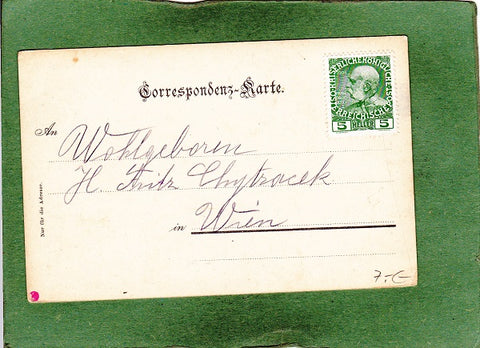 Correspondenz-Karte.
KAISERLICHE KÖNIGLICHE
ÖSTERREICHISCHE
5 5
An
Wohlgeboren
H. Fritz Chytracek
in Wien
Nur für die Adresse.
7.-€